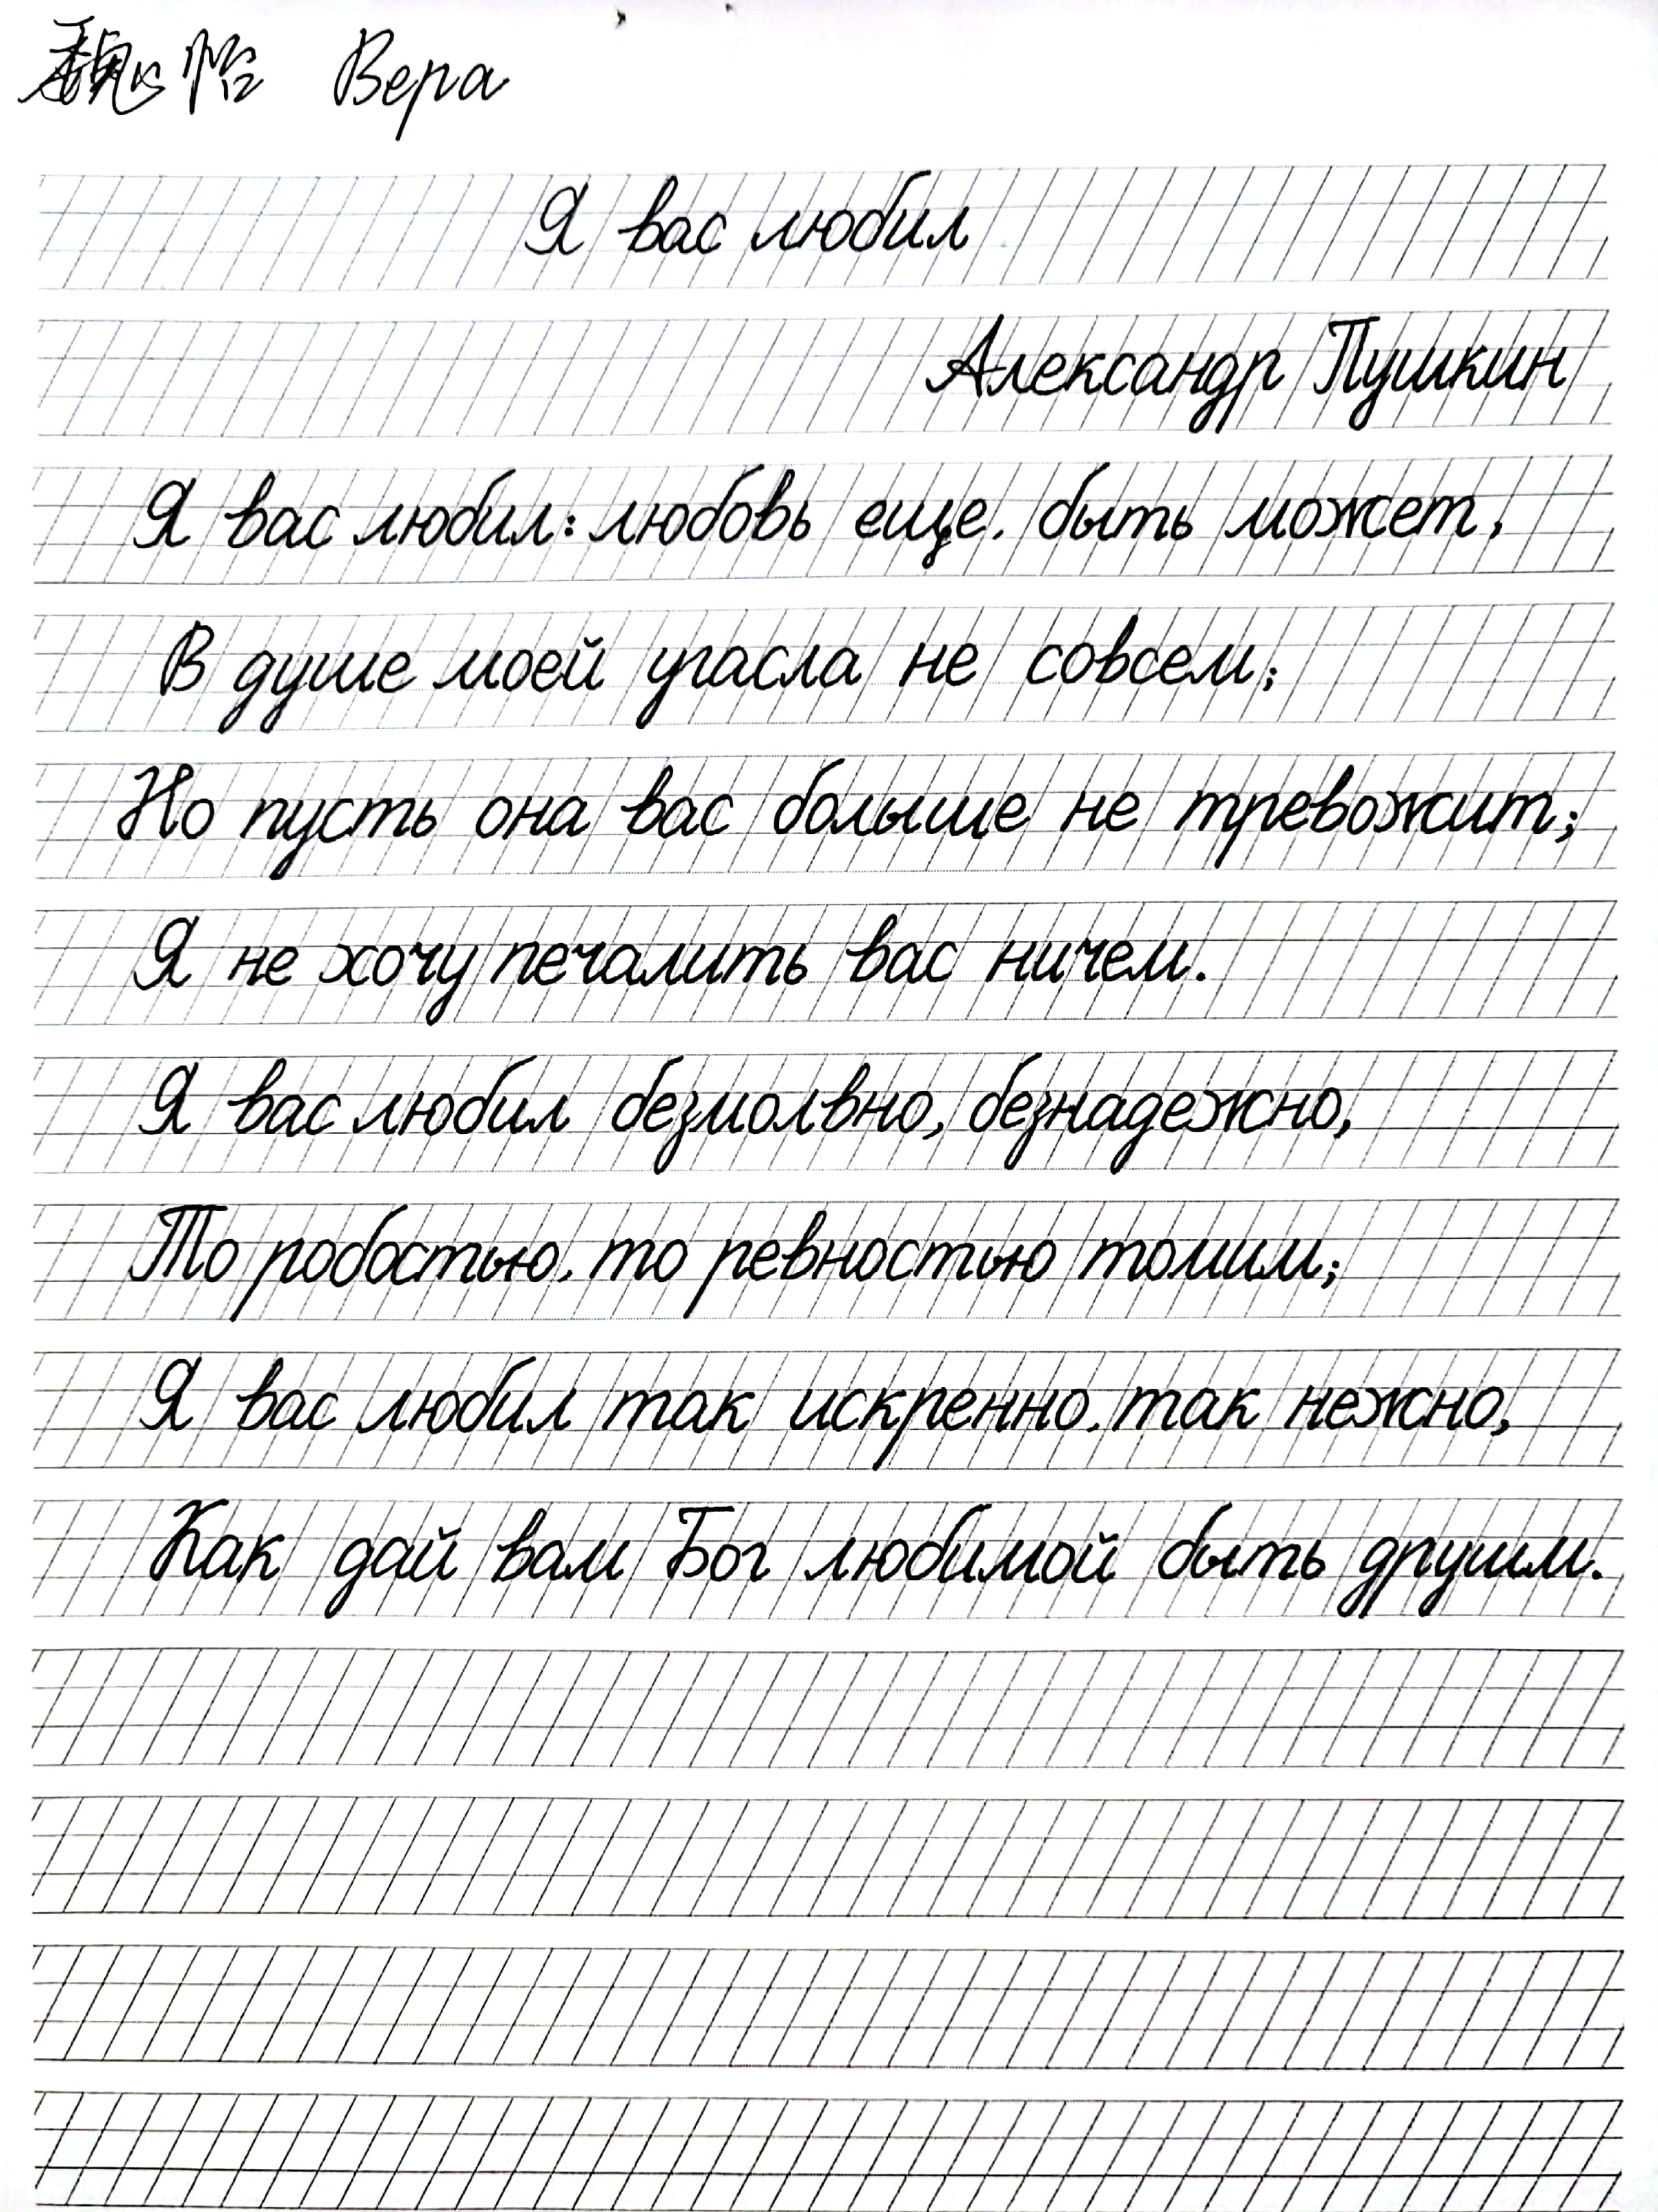 魏怡 Вера
Я вас любил
Александр Пушкин
Я вас любил: любовь еще, быть может,
В душе моей угасла не совсем;
Но пусть она вас больше не тревожит;
Я не хочу печалить вас ничем.
Я вас любил безмолвно, безнадежно,
То робостью, то ревностью томим;
Я вас любил так искренно, так нежно,
Как дай вам Бог любимой быть другим.